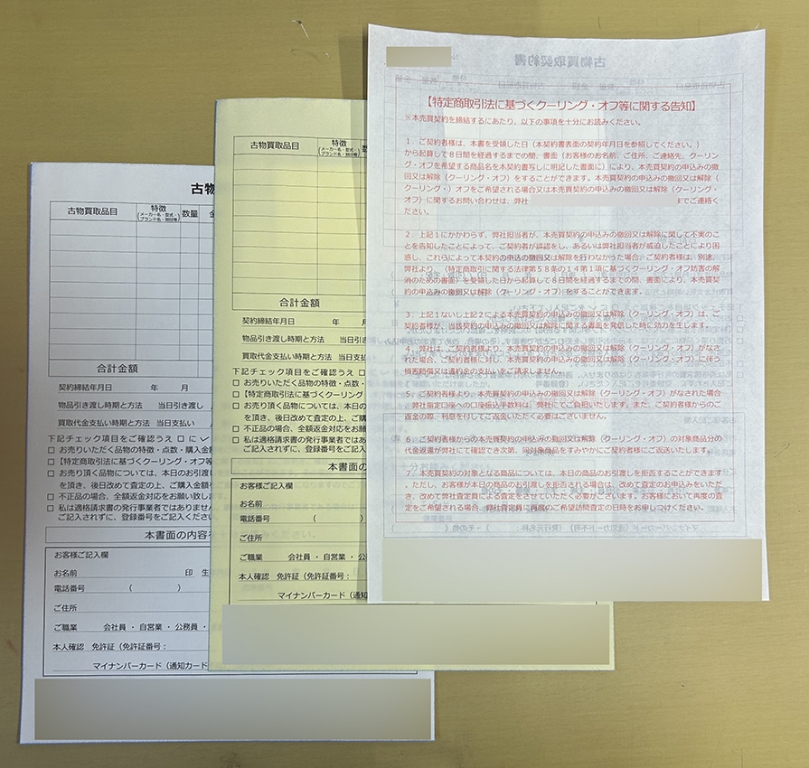 古物
古物買取品目
特徴
(メーカー名・型式・
ブランド名・時計等)
数量
合計金額
契約締結年月日 年 月
物品引き渡し時期と方法 当日引き渡し
買取代金支払い時期と方法 当日支払い
下記チェック項目をご確認うえ □ に ✓
□ お売りいただく品物の特徴・点数・購入金
□ 【特定商取引法に基づくクーリング・オフ等
□ お売り頂く品物については、本日のお引渡
を頂き、後日改めて査定の上、ご購入金額
□ 不正品の場合、全額返金対応をお願い致し
□ 私は適格請求書の発行事業者ではありません
ご記入されずに、登録番号をご記入ください
本書面の内容を
お客様ご記入欄
お名前 印 生
電話番号 ( )
ご住所
ご職業 会社員 ・ 自営業 ・ 公務員 ・
本人確認 免許証(免許証番号:
マイナンバーカード(通知カード
古物買取品目
特徴
(メーカー名・型式・
ブランド名・時計等)
合計金額
契約締結年月日 年 月
物品引き渡し時期と方法 当日
買取代金支払い時期と方法 当日
下記チェック項目をご確認うえ □
□ お売りいただく品物の特徴・点数・
□ 【特定商取引法に基づくクーリング
□ お売り頂く品物については、本日の
を頂き、後日改めて査定の上、ご購
□ 不正品の場合、全額返金対応をお願
□ 私は適格請求書の発行事業者ではあ
ご記入されずに、登録番号をご記入
本書面の
お客様ご記入欄
お名前
電話番号 (
ご住所
ご職業 会社員 ・ 自営業 ・ 公
本人確認 免許証(免許証番号:
マイナンバーカード(通知
古物買取契約書
【特定商取引法に基づくクーリング・オフ等に関する告知】
※本売買契約を締結するにあたり、以下の事項を十分にお読みください。
1.ご契約者様は、本書を受領した日(本契約書表面の契約年月日を参照してください。)
から起算して8日間を経過するまでの間、書面(お客様のお名前、ご住所、ご連絡先、クーリン
グ・オフを希望する商品名を本契約書写しに明記した書面)により、本売買契約の申込みの撤
回又は解除(クーリング・オフ)をすることができます。本売買契約の申込みの撤回又は解除(ク
ーリング・)オフをご希望される場合又は本売買契約の申込みの撤回又は解除(クーリング・
オフ)に関するお問い合わせは、弊社 までご連絡く
ださい。
2.上記1にかかわらず、弊社担当者が、本売買契約の申込みの撤回又は解除に関して不実のこ
とを告知したことによって、ご契約者が誤認をし、あるいは弊社担当者が威迫したことにより困
惑し、これらによって本契約の申込の撤回又は解除を行わなかった場合、ご契約者様は、別途、
弊社より、(特定商取引に関する法律第58条の14第1項に基づくクーリング・オフ妨害の解
消のための書面)を受領した日から起算して8日間を経過するまでの間、書面により、本売買契
約の申込みの撤回又は解除(クーリング・オフ)をすることができます。
3.上記1ないし上記2による本売買契約の申込みの撤回又は解除(クーリング・オフ)は、ご
契約者様が、当該契約の申込みの撤回又は解除に関する書面を発信した時に効力を生じます。
4.弊社は、ご契約者様より、本売買契約の申込みの撤回又は解除(クーリング・オフ)がなさ
れた場合、ご契約者様に対し、本売買契約の申込みの撤回又は解除(クーリング・オフ)に伴う
損害賠償又は違約金の支払をご請求しません。
5.ご契約者様より、本売買契約の申込みの撤回又は解除(クーリング・オフ)がなされた場合、
弊社指定口座への口座振込手数料は、弊社にてご負担いたします。また、ご契約者様からのご
返金の際、利息を付してご返還いただく必要はございません。
6.ご契約者様からの本売買契約の申込みの撤回又は解除(クーリング・オフ)の対象商品分の
代金返還が弊社にて確認でき次第、同対象商品をすみやかにご契約者様にご返送いたします。
7.本売買契約の対象となる商品については、本日の商品のお引渡しを拒否することができます。
ただし、お客様が本日の商品のお引渡しを拒否される場合は、改めて査定のお申込みをいただ
き、改めて弊社査定員による査定をさせていただく必要がございます。お客様において再度の査
定をご希望される場合、弊社査定員に再度のご希望訪問査定の日時をお申しつけください。